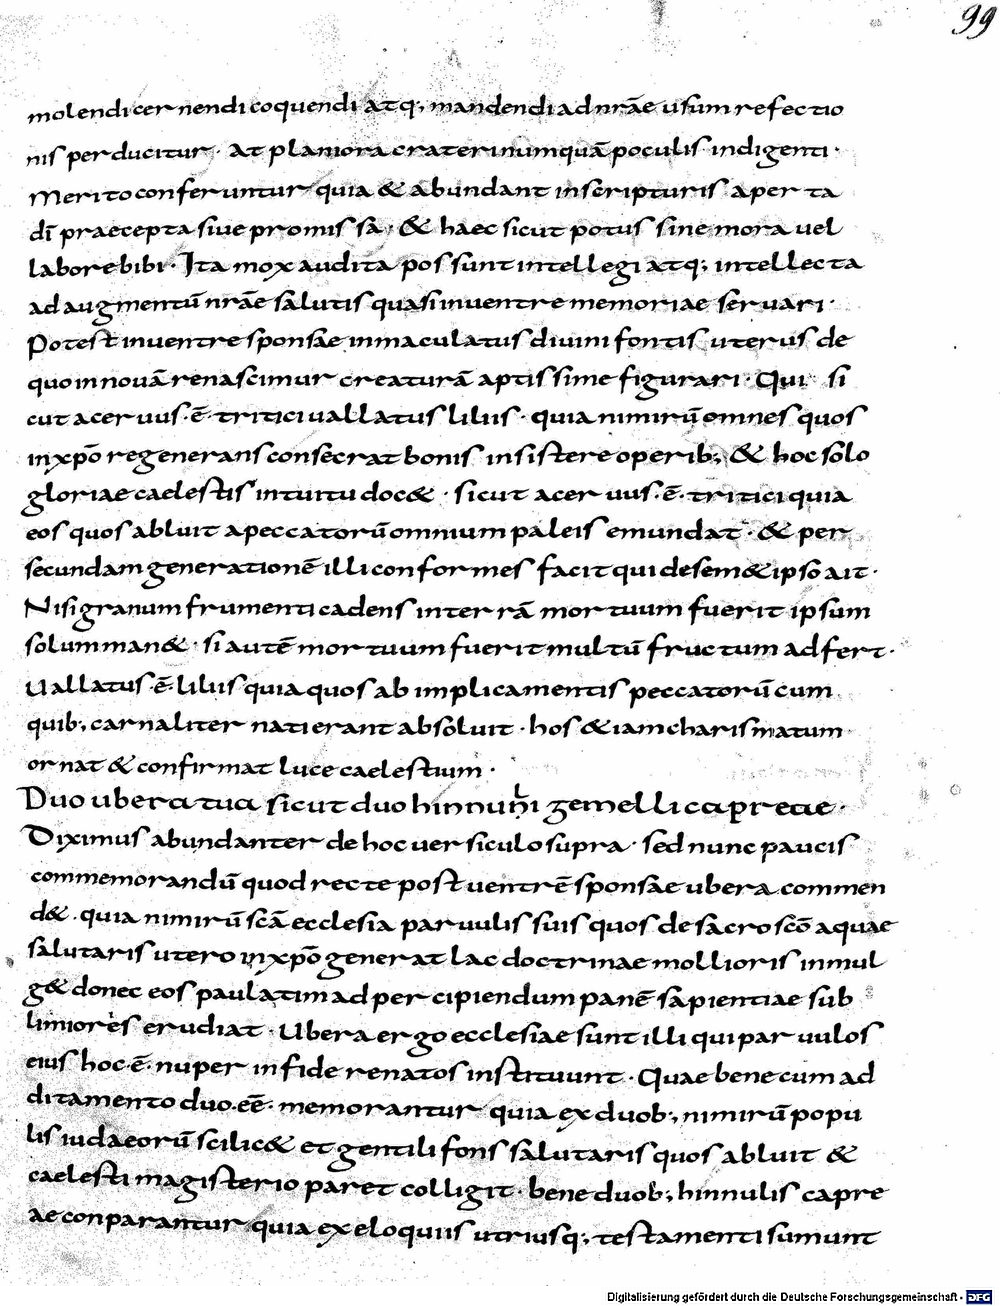 99
molendi cernendi coquendi atq; mandendi ad nr̄ae usum refectio
nis perducitur · at planiora crateri numquā poculis indigenti ·
Merito conferuntur quia & abundant in scripturis aperta
dī praecepta sive promissa · & haec sicut potus sine mora vel
labore bibi · Ita mox audita possunt intellegi atq; intellecta
ad augmentū nr̄ae salutis quasi in ventre memoriae servari ·
Potest in ventre sponsae inmaculatus divini fontis uterus de
quo in novā renascimur creaturā aptissime figurari · Qui si
cut acervus · ē · tritici vallatus liliis · quia nimirū omnes quos
in xp̄o regenerans consecrat bonis insistere operib; & hoc solo
gloriae caelestis intuitu doc& · sicut acervus · ē · tritici quia
eos quos abluit a peccatorū omnium paleis emundat · & per
secundam generationē illi conformes facit qui de sem&ipso ait ·
Nisi granum frumenti cadens in terrā mortuum fuerit ipsum
solum man& · si autē mortuum fuerit multū fructum adfert ·
Vallatus · ē · liliis quia quos ab implicamentis peccatorū cum
quib; carnaliter nati erant absoluit · hos &iam charismatum
ornat & confirmat luce caelestium ·
Duo ubera tua sicut duo hinnuli gemelli capreae ·
Diximus abundanter de hoc versiculo supra · sed nunc paucis
commemorandū quod recte post ventrē sponsae ubera commen
d& · quia nimirū scā ecclesia parvulis suis quos de sacroscō aquae
salutaris utero in xp̄o generat lac doctrinae mollioris inmul
g& donec eos paulatim ad percipiendum panē sapientiae sub
limiores erudiat · Ubera ergo ecclesiae sunt illi qui parvulos
eius hoc · ē · nuper in fide renatos instituunt · Quae bene cum ad
ditamento duo · eē · memorantur quia ex duob; nimirū popu
lis iudaeorū scilic& et gentili fons salutaris quos abluit &
caelesti magisterio paret colligit · bene duob; hinnulis capre
ae conparantur quia ex eloquiis utriusq; testamenti sumunt
Digitalisierung gefördert durch die Deutsche Forschungsgemeinschaft - DFG